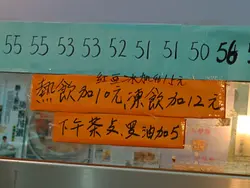 55 55 53 53 52 51 51 50 56
紅豆冰加15元
熱飲加10元凍飲加12元
下午茶叉、豉油加5